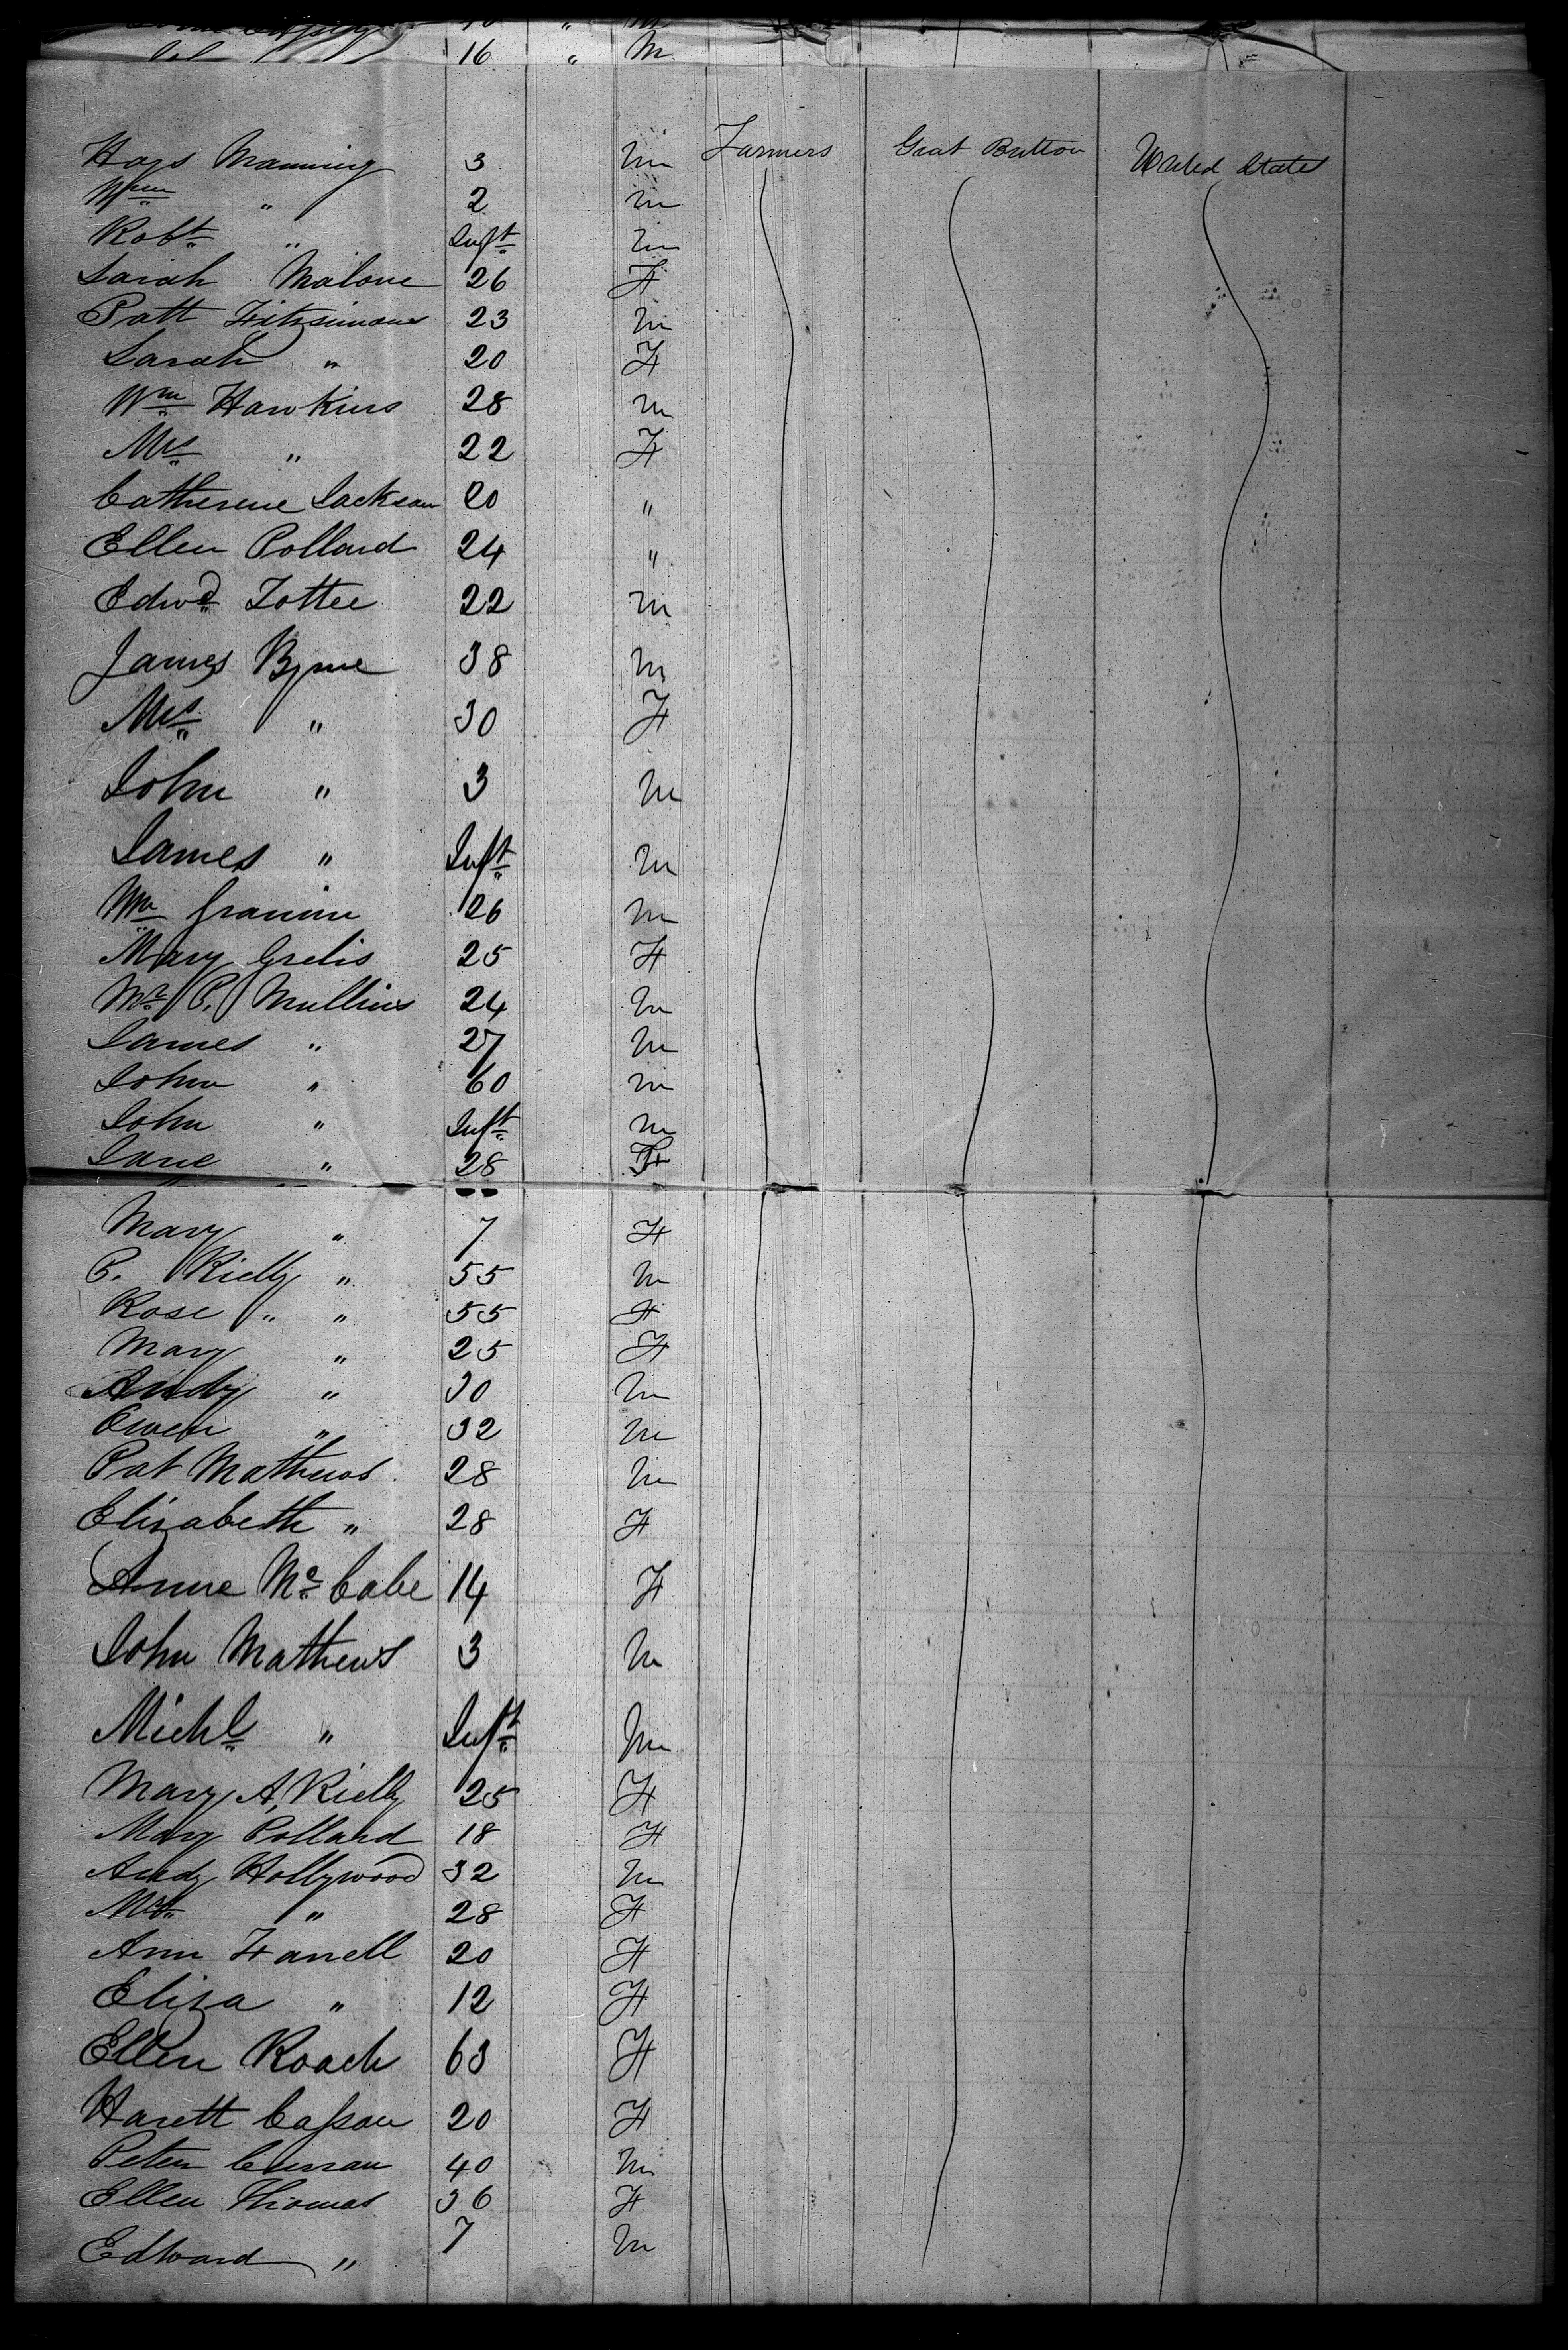 16 " M
Hays Manning 3 M Farmers Great Britton United States
Wm " 2 M
Robt " Inft M
Sarah Malone 26 F
Patt Fitzsimons 23 M
Sarah " 20 F
Wm Hawkins 28 M
Mrs " 22 F
Catherine Jackson 20 "
Ellen Pollard 24 "
Edwd Tottee 22 M
James Byrne 38 M
Mrs " 30 F
John " 3 M
James " Inft M
Wm 26 M
Mary Grelis 25 F
Mr P. Mullins 24 M
James " 27 M
John " 60 M
John " Inft M
Jane " 28 F
Mary " 7 F
P. Rielly " 55 M
Rose " " 55 F
Mary " 25 F
Andy " 30 M
Owen " 32 M
Pat Mathews 28 M
Elizabeth " 28 F
Anne Mc Cabe 14 F
John Mathews 3 M
Michl " Inft M
Mary A, Rielly 25 F
Mary Pollard 18 F
Andy Hollywood 32 M
Mrs " 28 F
Ann Farrell 20 F
Eliza " 12 F
Ellen Roach 63 F
Harett Casson 20 F
Peter Curran 40 M
Ellen Thomas 36 F
Edward " 7 M